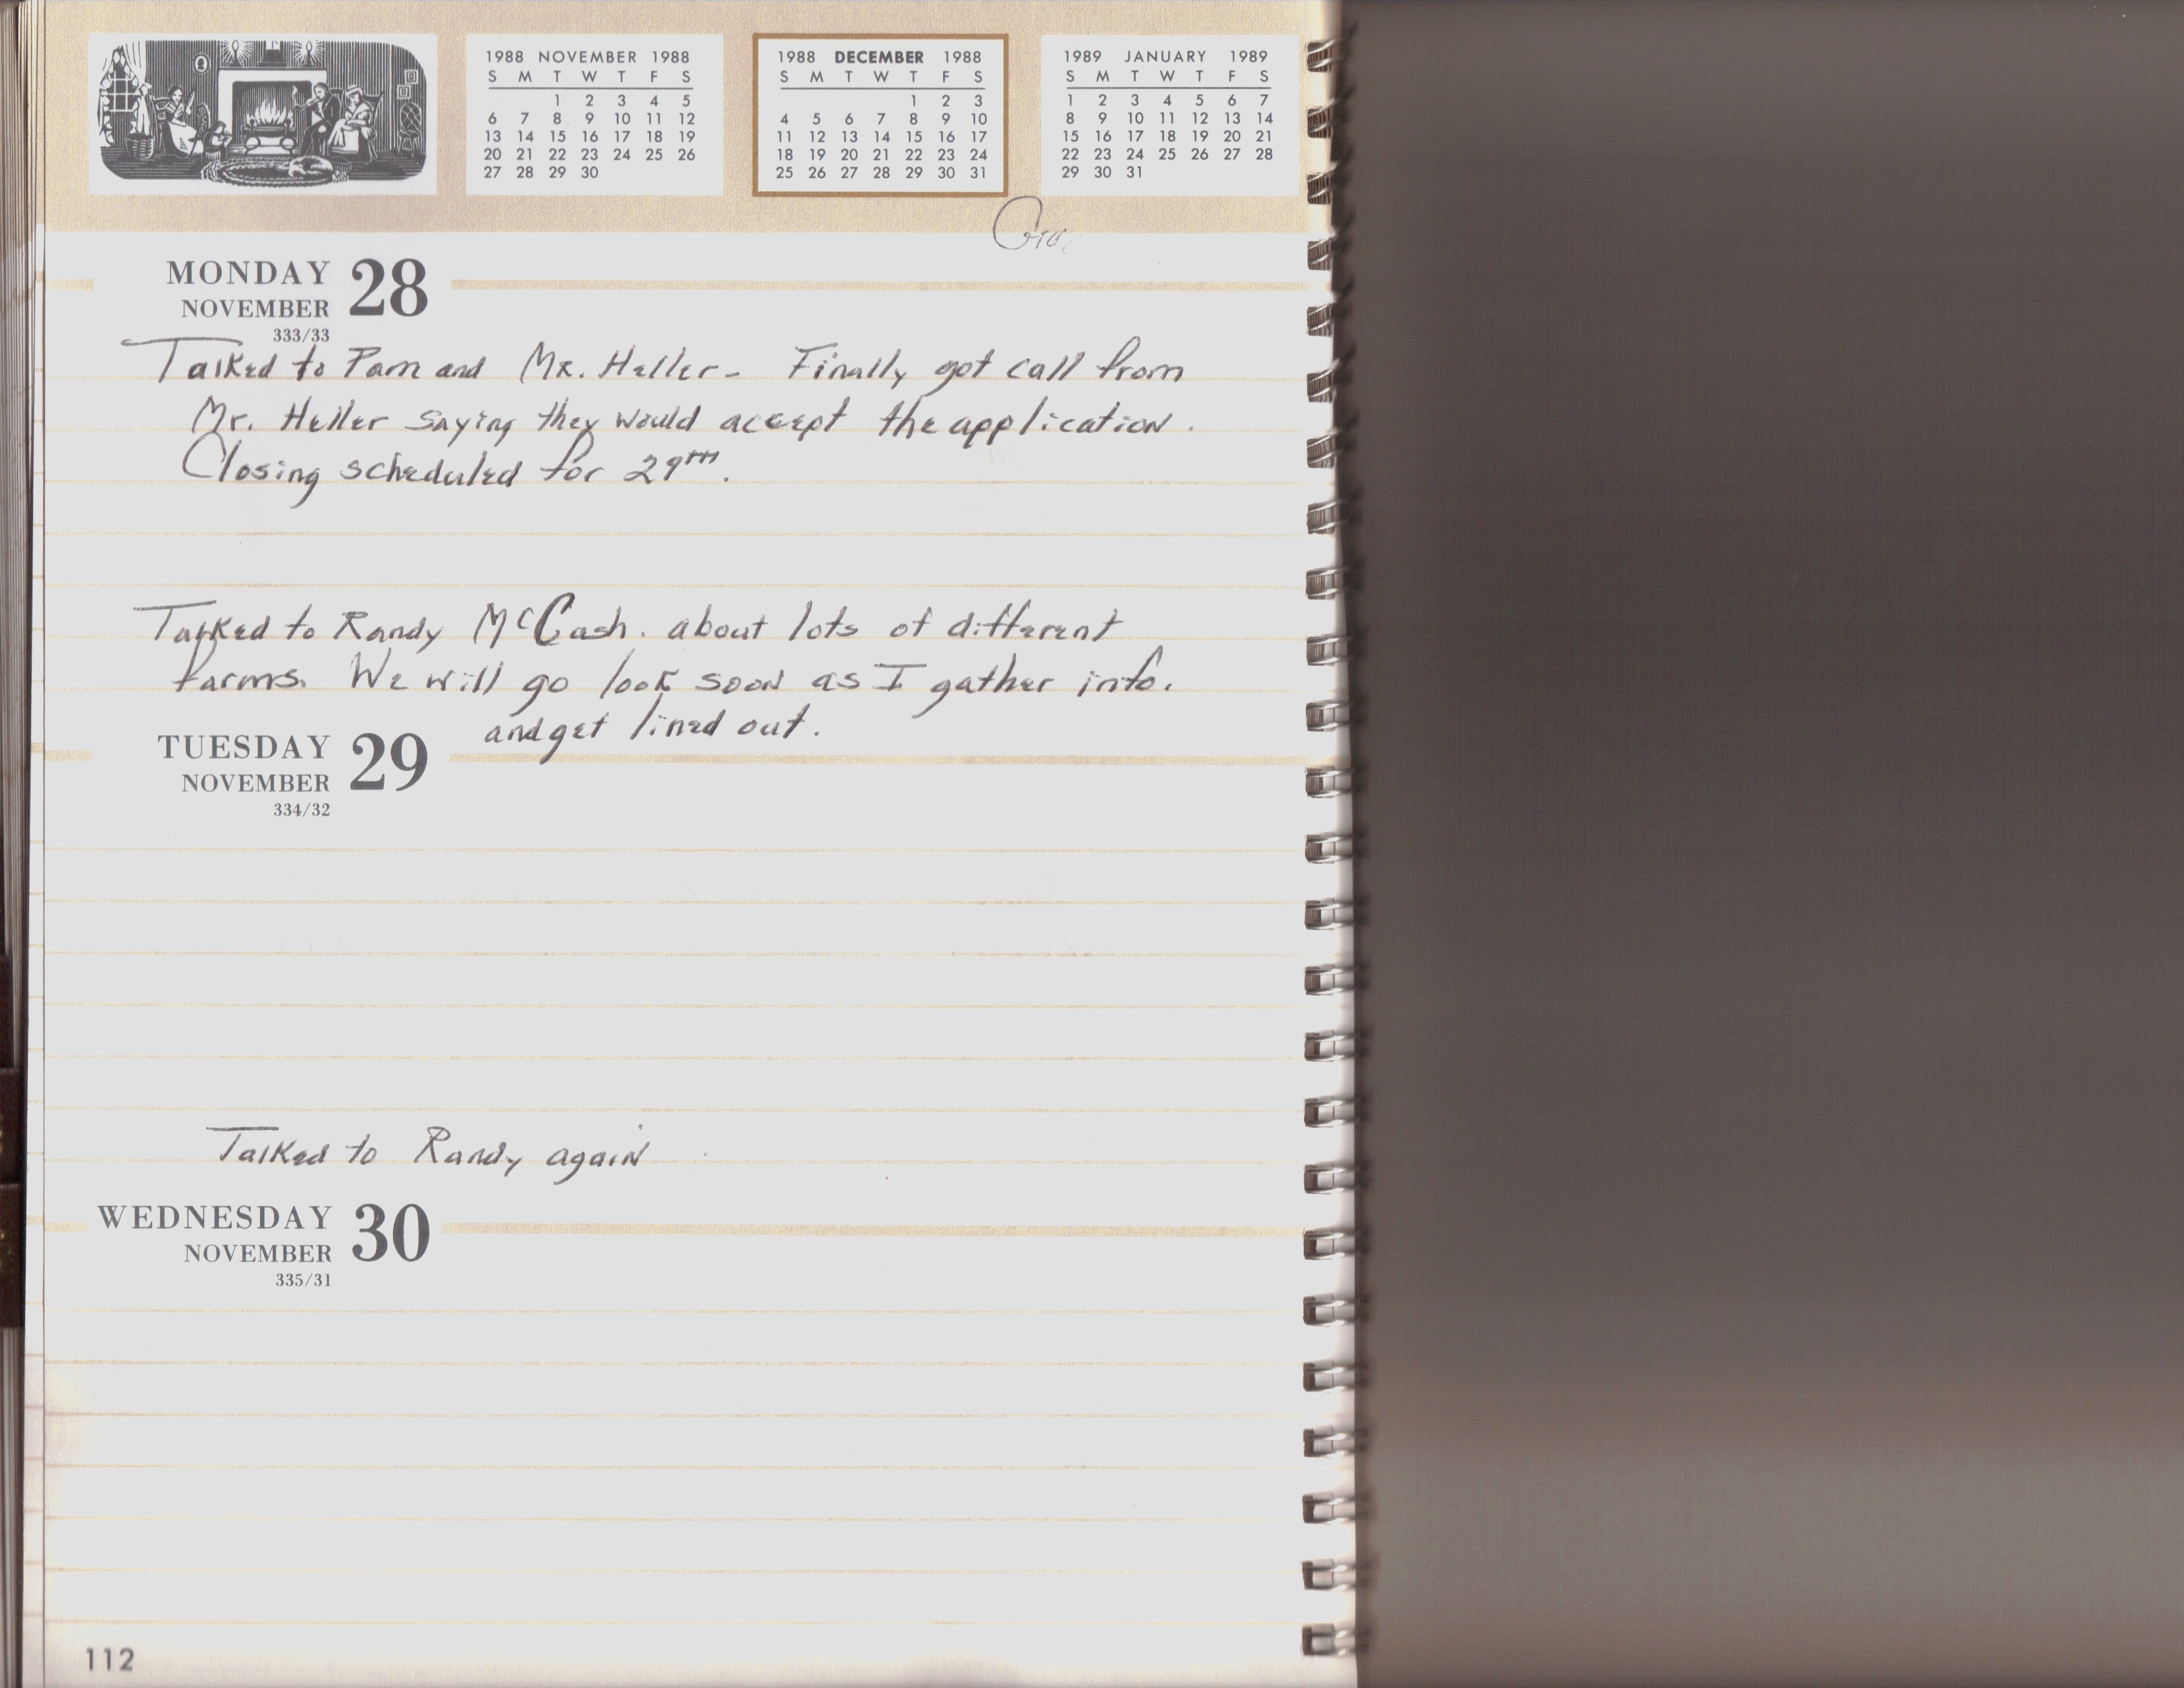 1988 NOVEMBER 1988
S M T W T F S
1 2 3 4 5
6 7 8 9 10 11 12
13 14 15 16 17 18 19
20 21 22 23 24 25 26
27 28 29 30
1988 DECEMBER 1988
S M T W T F S
1 2 3
4 5 6 7 8 9 10
11 12 13 14 15 16 17
18 19 20 21 22 23 24
25 26 27 28 29 30 31
1989 JANUARY 1989
S M T W T F S
1 2 3 4 5 6 7
8 9 10 11 12 13 14
15 16 17 18 19 20 21
22 23 24 25 26 27 28
29 30 31
MONDAY 28
NOVEMBER
333/33
Talked to Pam and Mr. Heller - Finally got call from
Mr. Heller saying they would accept the application.
Closing scheduled for 29TH.
Talked to Randy McCash. about lots of different
farms. We will go look soon as I gather info.
and get lined out.
TUESDAY 29
NOVEMBER
334/32
Talked to Randy again
WEDNESDAY 30
NOVEMBER
335/31
112